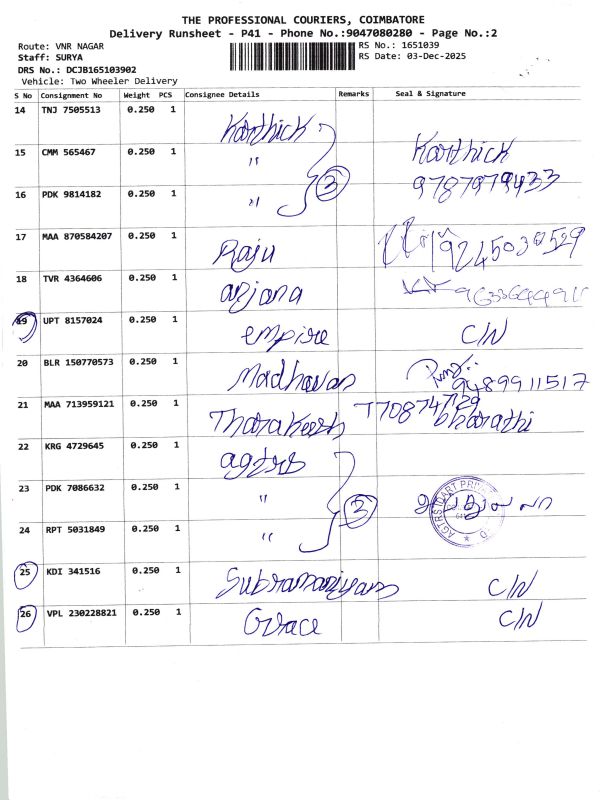 THE PROFESSIONAL COURIERS, COIMBATORE
Delivery Runsheet - P41 - Phone No.:9047080280 - Page No.:2
Route: VNR NAGAR
RS No.: 1651039
Staff: SURYA
RS Date: 03-Dec-2025
DRS No.: DCJB165103902
Vehicle: Two Wheeler Delivery
S No Consignment No Weight PCS Consignee Details Remarks Seal & Signature
14 TNJ 7505513 0.250 1 Karthick
15 CMM 565467 0.250 1 " Karthick
16 PDK 9814182 0.250 1 " 3 9787979433
17 MAA 870584207 0.250 1 Raju
18 TVR 4364606 0.250 1 anjana
19 UPT 8157024 0.250 1 empire C/N
20 BLR 150770573 0.250 1 Madhavan 9489911517
21 MAA 713959121 0.250 1 Tharakeesh T708747129 bharathi
22 KRG 4729645 0.250 1 agtrs
23 PDK 7086632 0.250 1 " 3
24 RPT 5031849 0.250 1 "
25 KDI 341516 0.250 1 Subramaniyam C/N
26 VPL 230228821 0.250 1 Grace C/N